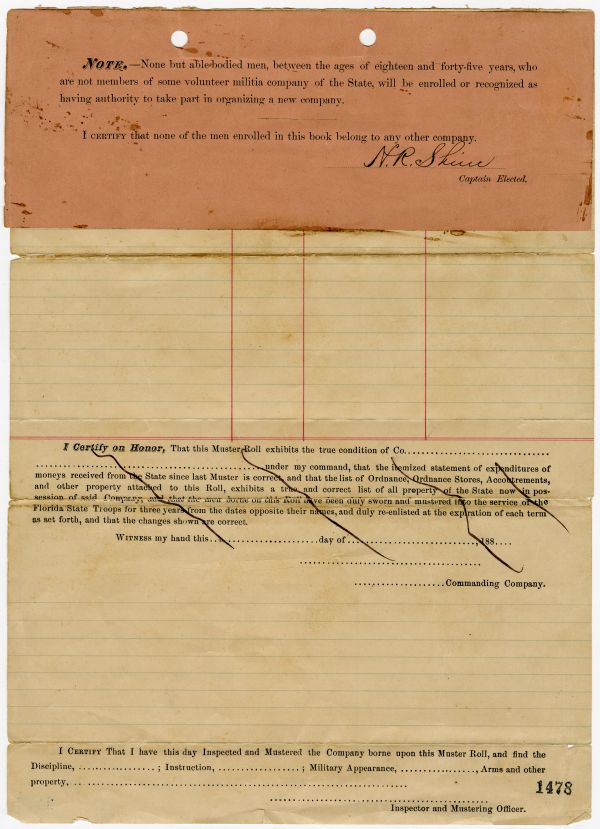 NOTE.—None but able-bodied men, between the ages of eighteen and forty-five years, who
are not members of some volunteer militia company of the State, will be enrolled or recognized as
having authority to take part in organizing a new company.
I CERTIFY that none of the men enrolled in this book belong to any other company.
N. R. Shine
Captain Elected.
I Certify on Honor, That this Muster Roll exhibits the true condition of Co.
under my command, that the itemized statement of expenditures of
moneys received from the State since last Muster is correct, and that the list of Ordnance, Ordnance Stores, Accoutrements,
and other property attached to this Roll, exhibits a true and correct list of all property of the State now in pos-
session of said Company, and that the men borne on this Roll have been duly sworn and mustered into the service of the
Florida State Troops for three years from the dates opposite their names, and duly re-enlisted at the expiration of each term
as set forth, and that the changes shown are correct.
WITNESS my hand this .................... day of ...................., 188....
....................Commanding Company.
I CERTIFY That I have this day Inspected and Mustered the Company borne upon this Muster Roll, and find the
Discipline, ....................; Instruction, ....................; Military Appearance, ...................., Arms and other
property, ....................
1478
Inspector and Mustering Officer.